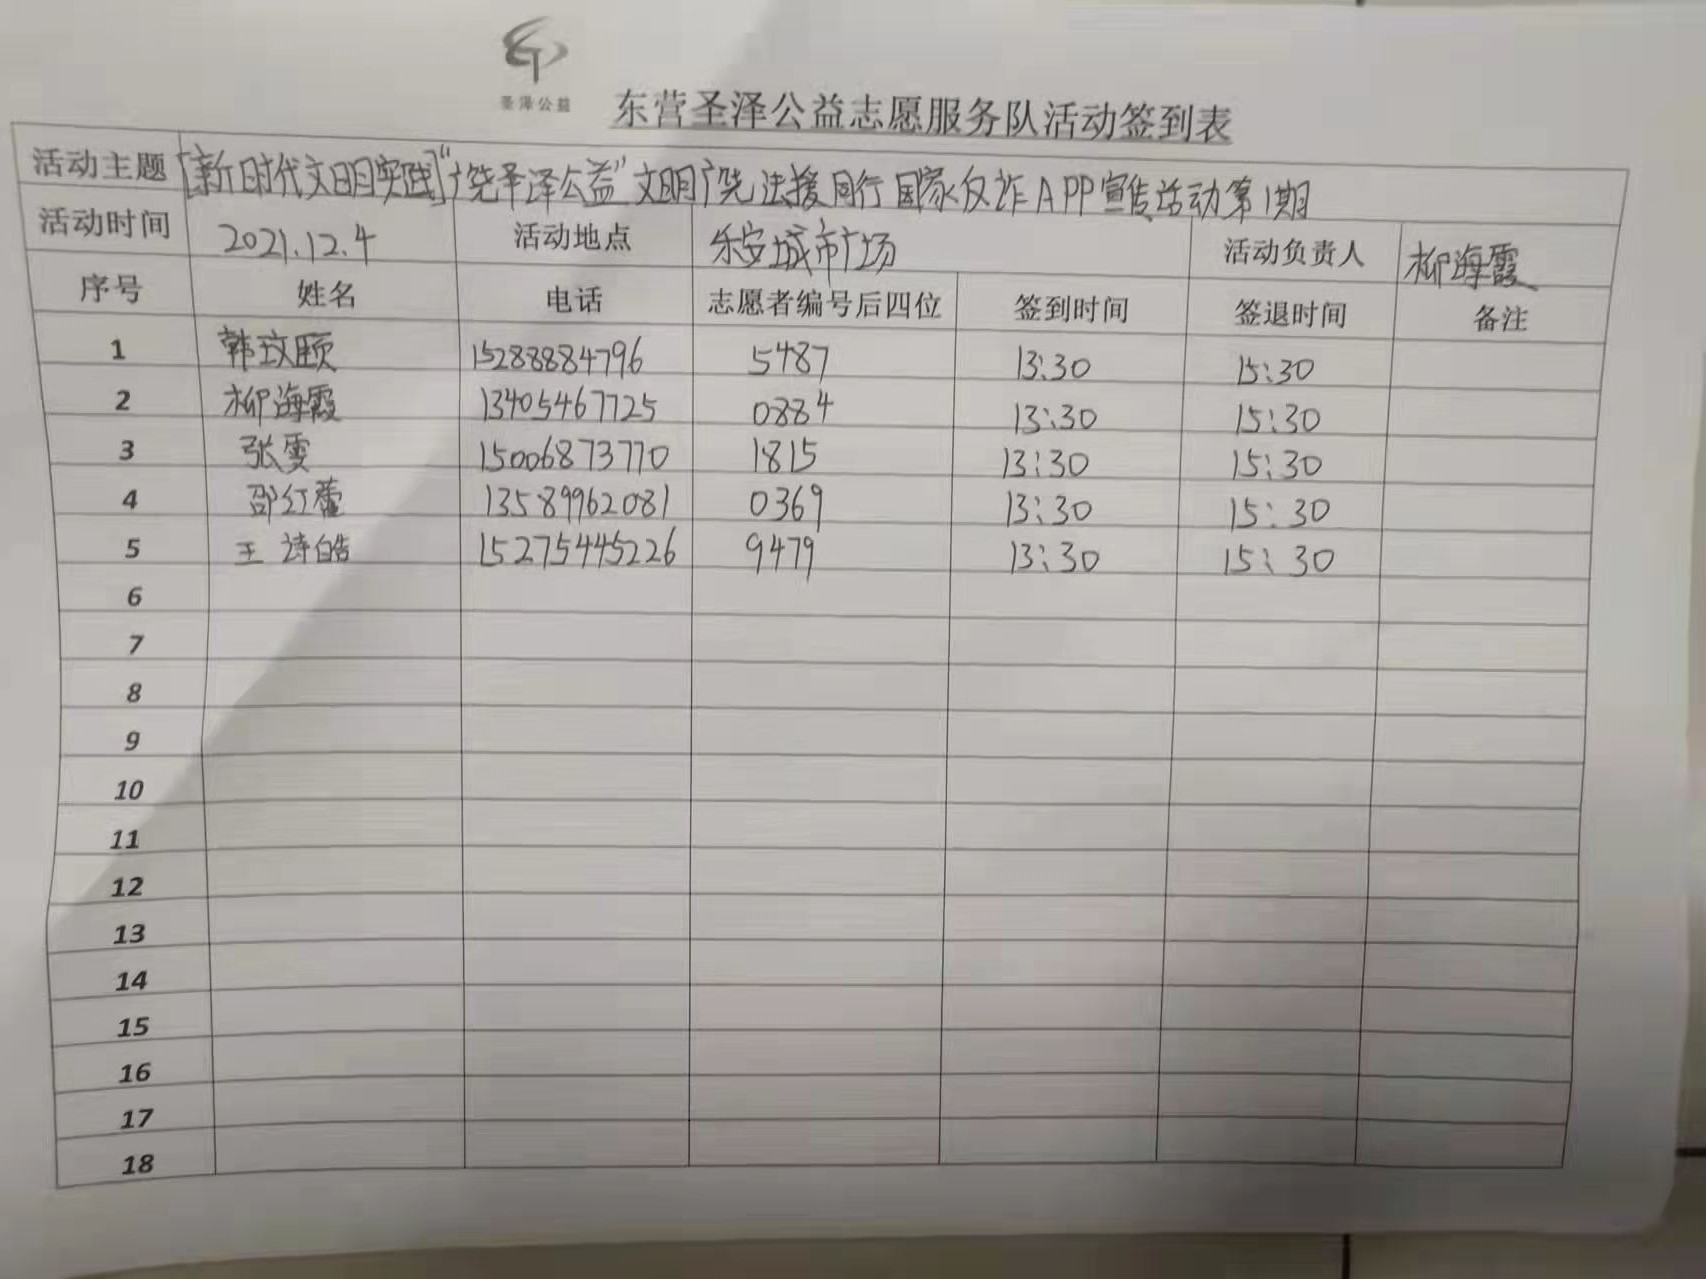 圣泽公益
东营圣泽公益志愿服务队活动签到表
活动主题 [新时代文明实践]“广饶圣泽公益”文明广饶 法援同行 国家反诈APP宣传活动第1期
活动时间 2021.12.4 活动地点 乐安城市广场 活动负责人 柳海霞
序号 姓名 电话 志愿者编号后四位 签到时间 签退时间 备注
1 韩玟颐 15288884796 5487 13:30 15:30
2 柳海霞 13405467725 0884 13:30 15:30
3 张雯 15006873770 1815 13:30 15:30
4 邵红蕾 13589962081 0369 13:30 15:30
5 王诗皓 15275445226 9479 13:30 15:30
6
7
8
9
10
11
12
13
14
15
16
17
18